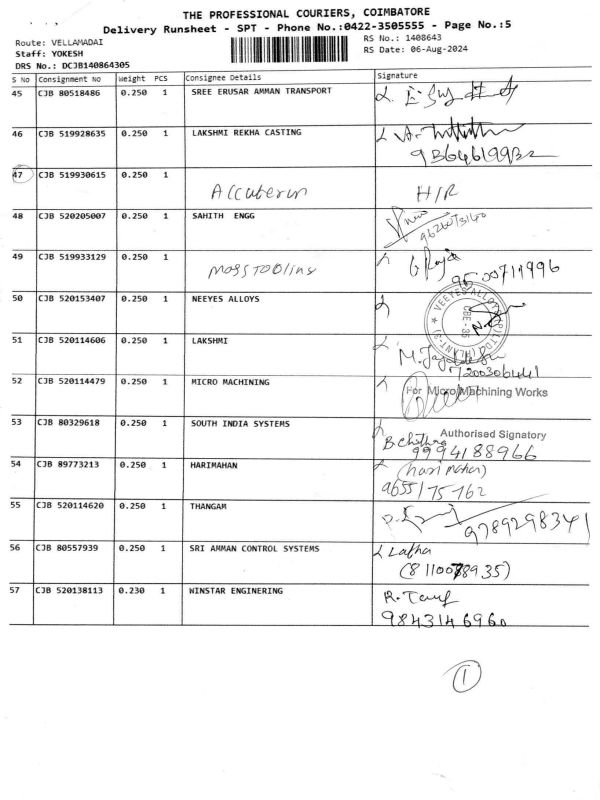 THE PROFESSIONAL COURIERS, COIMBATORE
Delivery Runsheet - SPT - Phone No.:0422-3505555 - Page No.:5
Route: VELLAMADAI
RS No.: 1408643
Staff: YOKESH
RS Date: 06-Aug-2024
DRS No.: DCJB140864305
S No Consignment No Weight PCS Consignee Details Signature
45 CJB 80518486 0.250 1 SREE ERUSAR AMMAN TRANSPORT
46 CJB 519928635 0.250 1 LAKSHMI REKHA CASTING
9364619932
47 CJB 519930615 0.250 1 Accuterun H/R
48 CJB 520205007 0.250 1 SAHITH ENGG
9626073140
49 CJB 519933129 0.250 1 Mass Tooling G Raja
9500711996
50 CJB 520153407 0.250 1 NEEYES ALLOYS
51 CJB 520114606 0.250 1 LAKSHMI
7200306441
52 CJB 520114479 0.250 1 MICRO MACHINING For Micro Machining Works
53 CJB 80329618 0.250 1 SOUTH INDIA SYSTEMS Authorised Signatory
B Chithra
9994188966
54 CJB 89773213 0.250 1 HARIMAHAN (hari mahan)
9655175162
55 CJB 520114620 0.250 1 THANGAM
9789298341
56 CJB 80557939 0.250 1 SRI AMMAN CONTROL SYSTEMS Latha
(8110078935)
57 CJB 520138113 0.230 1 WINSTAR ENGINERING
9843146960
1